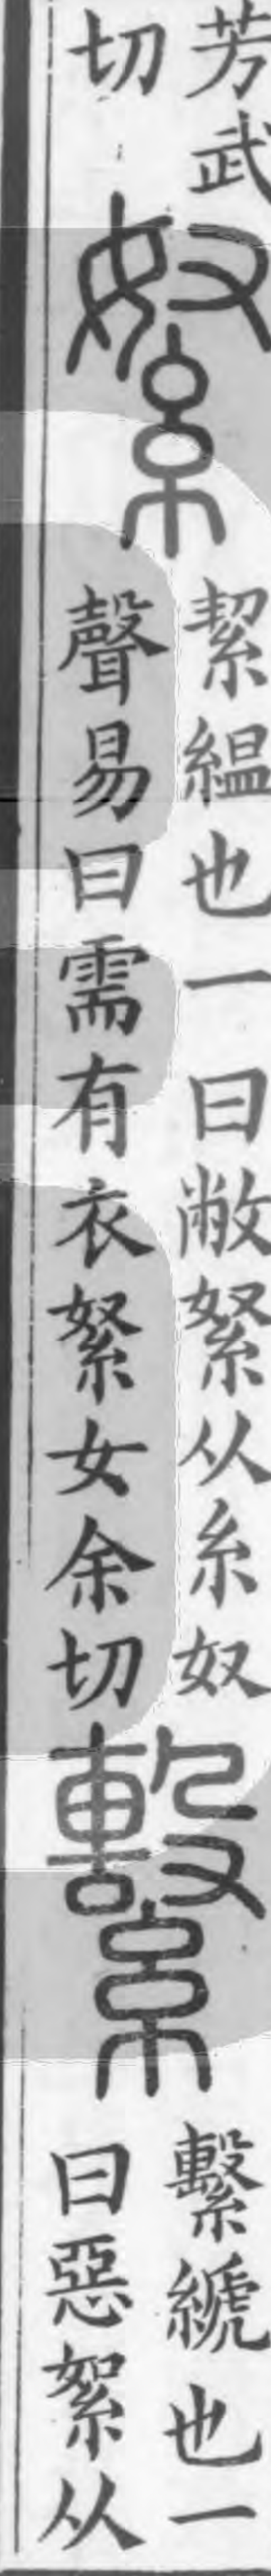 芳武
切
絮
絜緼也一曰敝絮从糸奴
聲易曰需有衣絮女余切
繫
繫㡣也一
曰惡絮从